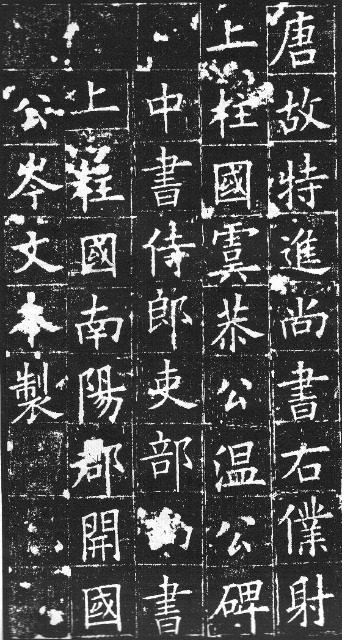 唐故特進尚書右僕射
上柱國虞恭公温公碑
中書侍郎吏部尚書
上柱國南陽郡開國
公岑文本製